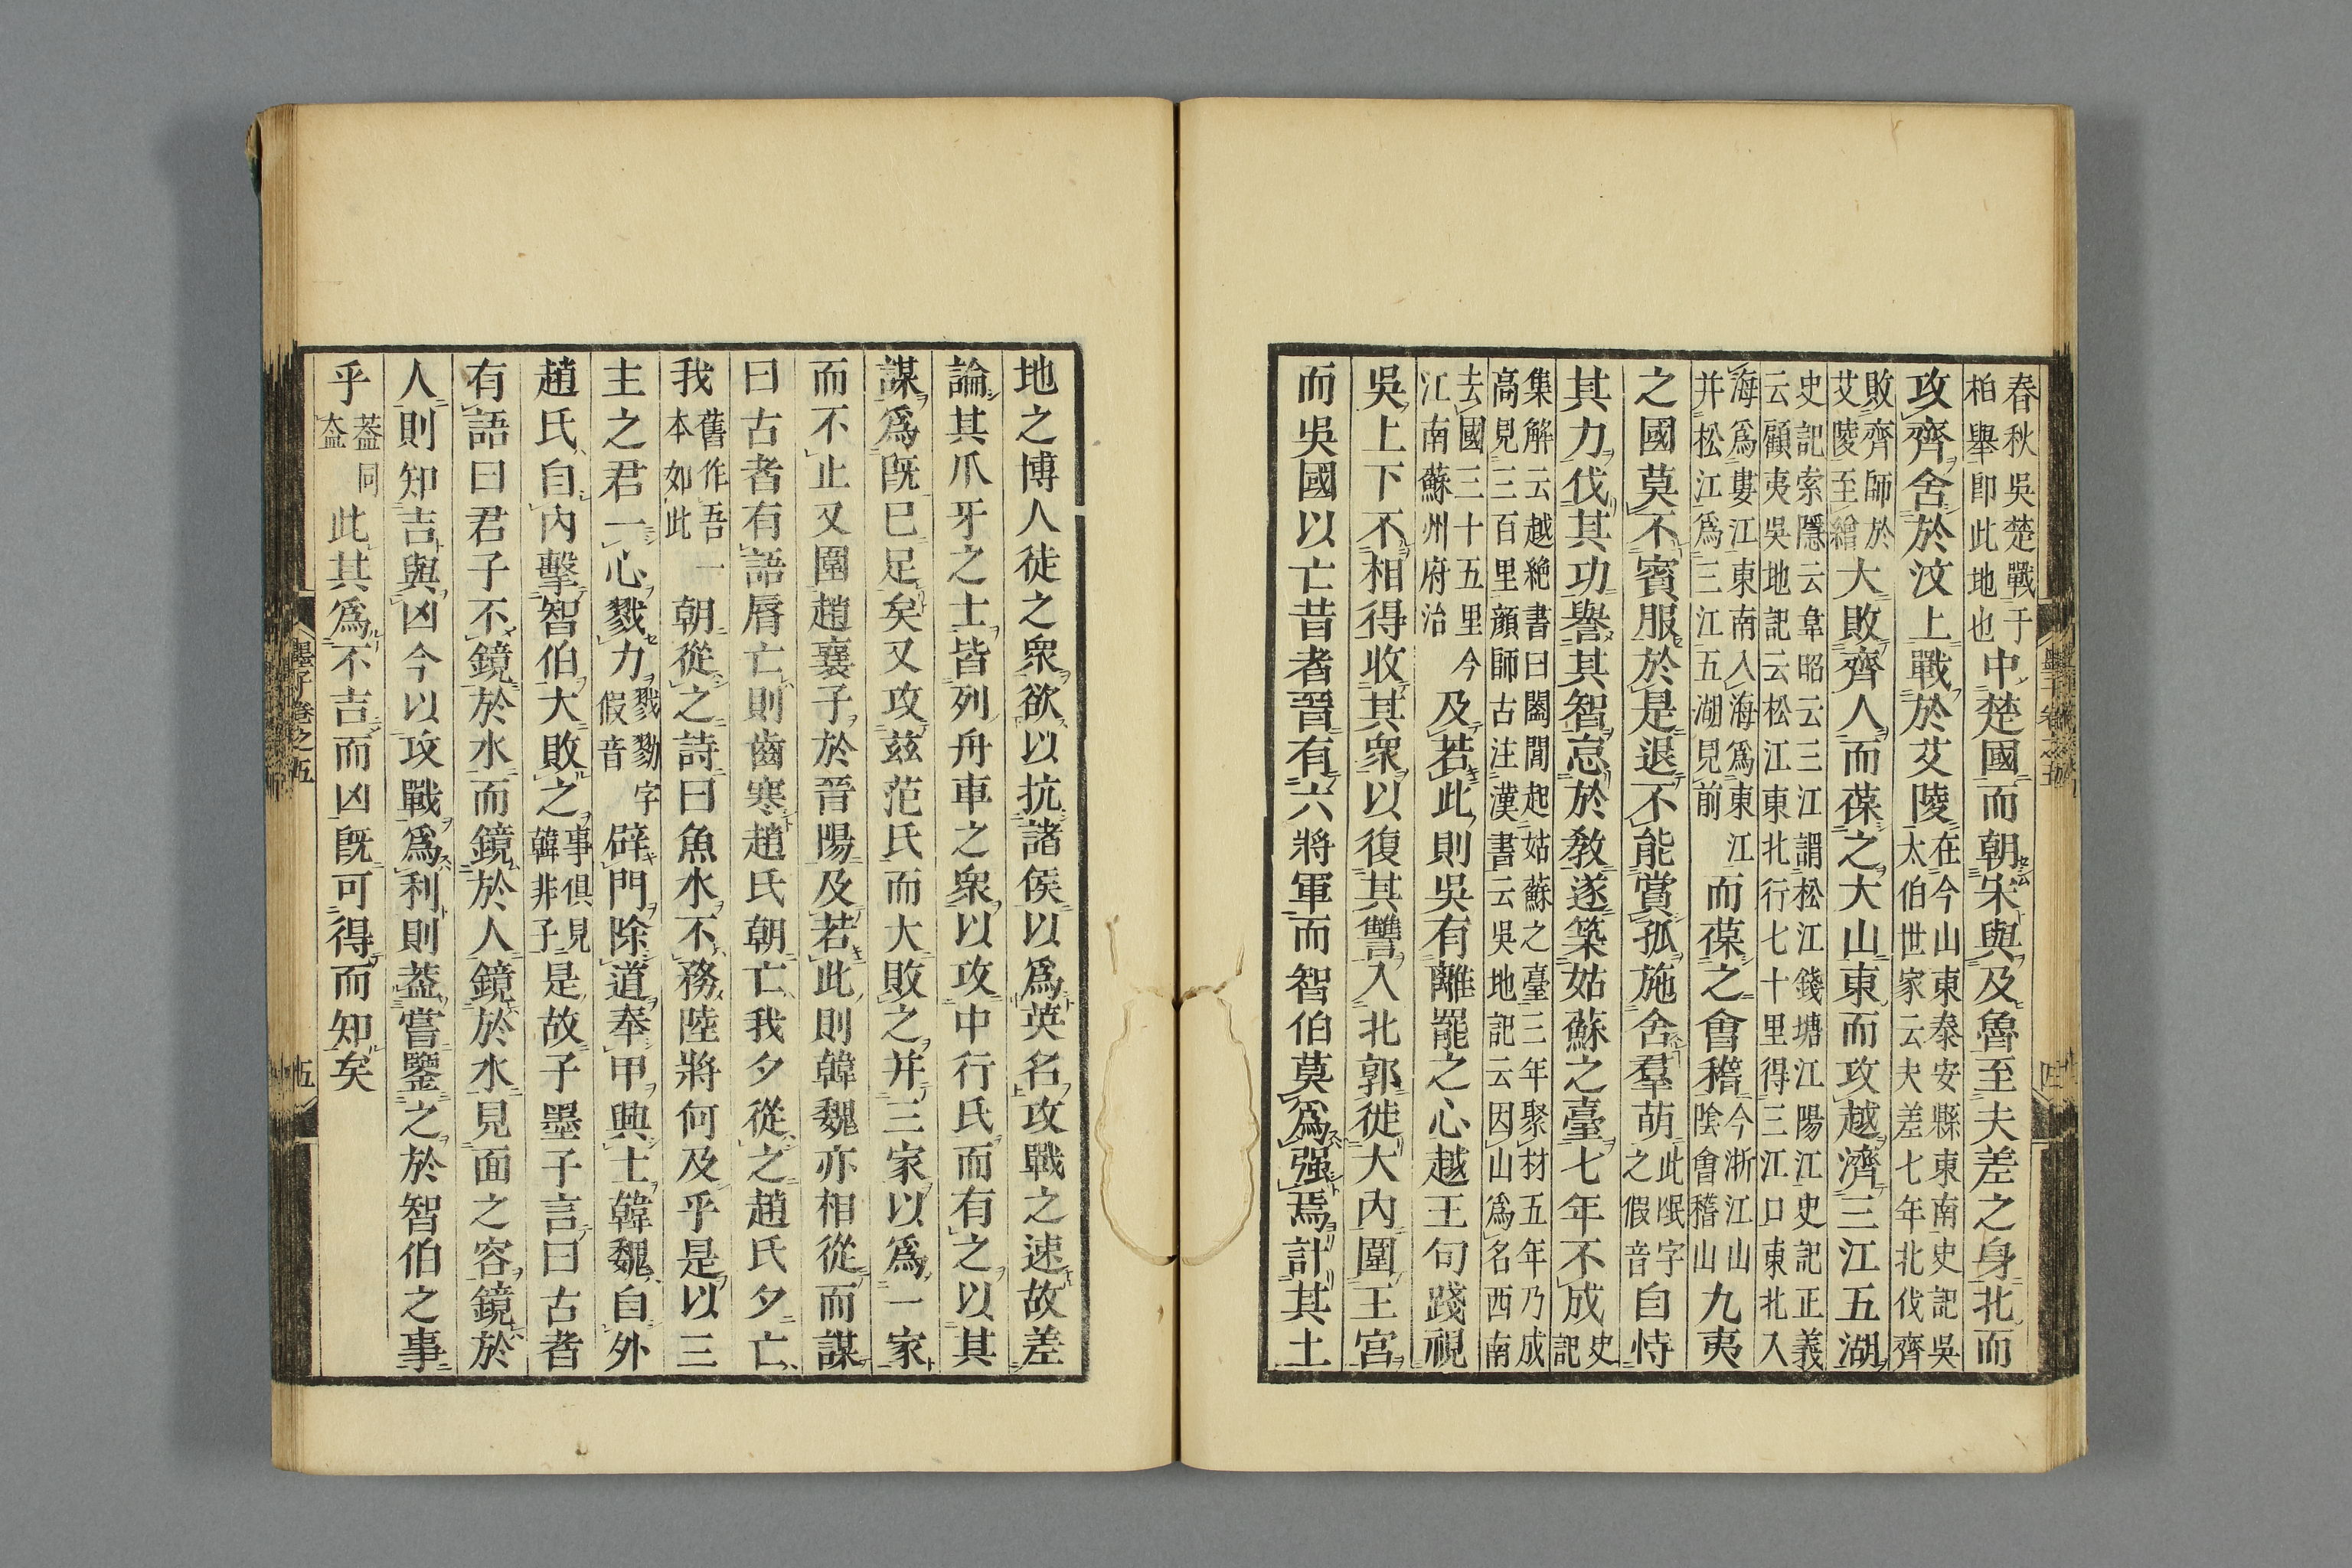 春秋吳楚戰于栢舉卽此地也中楚國而朝宋與及魯至夫差之身北而
攻齊舍於汶上戰於艾陵在今山東泰安縣東南史記吳太伯世家云夫差七年北伐齊
敗齊師於艾陵至繒大敗齊人而葆之大山東而攻越濟三江五湖
史記索隱云韋昭云三江謂松江錢塘江陽江史記正義云顧夷吳地記云松江東北行七十里得三江口東北入
海爲婁江東南入海爲東江并松江爲三江五湖見前而葆之會稽今浙江山陰會稽山九夷
之國莫不賓服於是退不能賞孤施舍羣萌此氓字之假音自恃
其力伐其功譽其智怠於敎遂築姑蘇之臺七年不成史記
集解云越絕書曰闔閭起姑蘇之臺三年聚材五年乃成高見三百里顔師古注漢書云吳地記云因山爲名西南
去國三十五里今江南蘇州府治及若此則吳有離罷之心越王句踐視
吳上下不相得收其衆以復其讐入北郭徙大內圍王宮
而吳國以亡昔者晉有六將軍而智伯莫爲强焉計其土
地之博人徒之衆欲以抗諸侯以爲英名攻戰之速故差
論其爪牙之士皆列舟車之衆以攻中行氏而有之以其
謀爲旣已足矣又攻茲范氏而大敗之并三家以爲一家
而不止又圍趙襄子於晉陽及若此則韓魏亦相從而謀
曰古者有語脣亡則齒寒趙氏朝亡我夕從之趙氏夕亡
我舊作吾一本如此朝從之詩曰魚水不務陸將何及乎是以三
主之君一心戮力戮勠字假音辟門除道奉甲興士韓魏自外
趙氏自內擊智伯大敗之事俱見韓非子是故子墨子言曰古者
有語曰君子不鏡於水而鏡於人鏡於水見面之容鏡於
人則知吉與凶今以攻戰爲利則葢嘗鑒之於智伯之事
乎葢同盍此其爲不吉而凶旣可得而知矣
墨子卷之五
十五